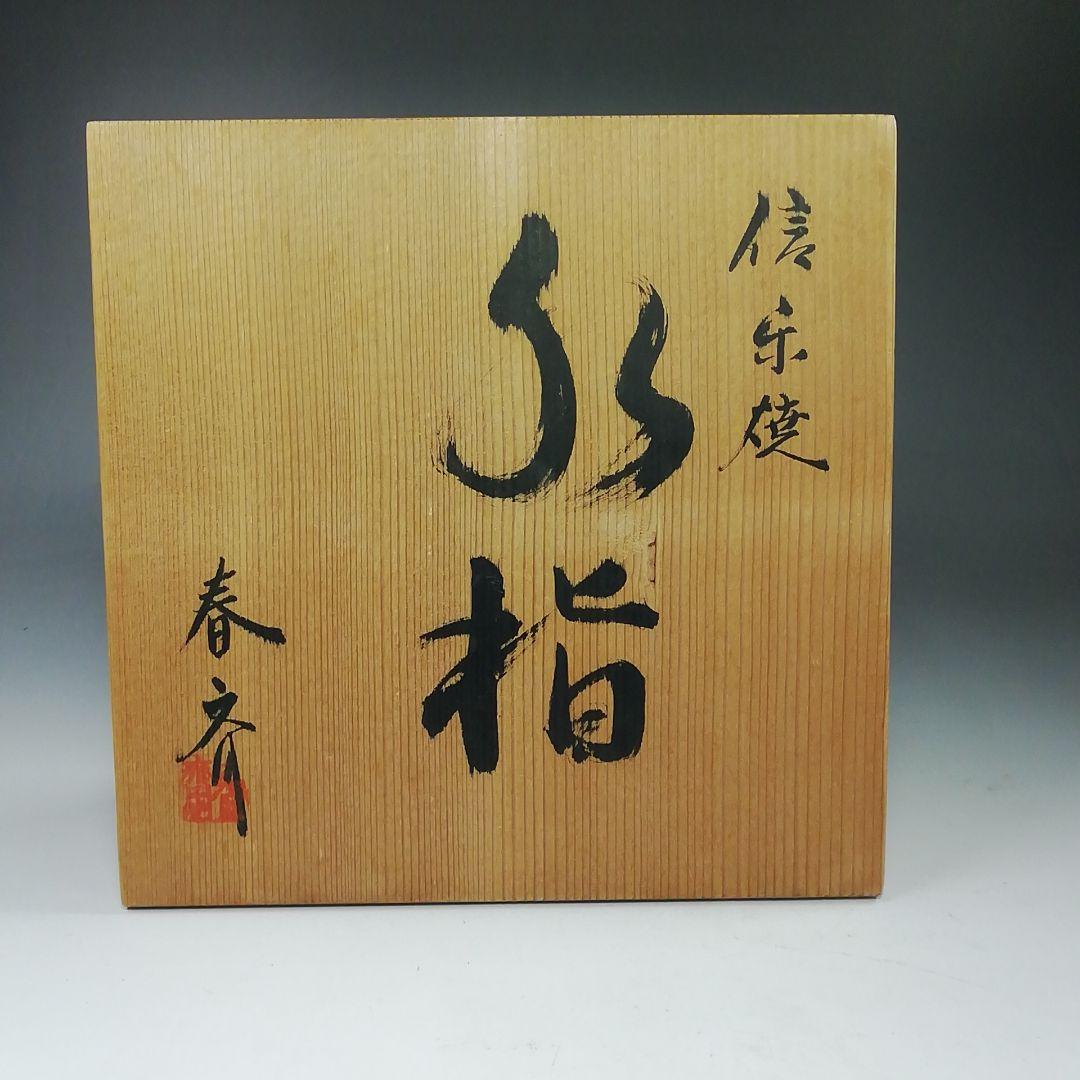 信乐焼
水指
春斉